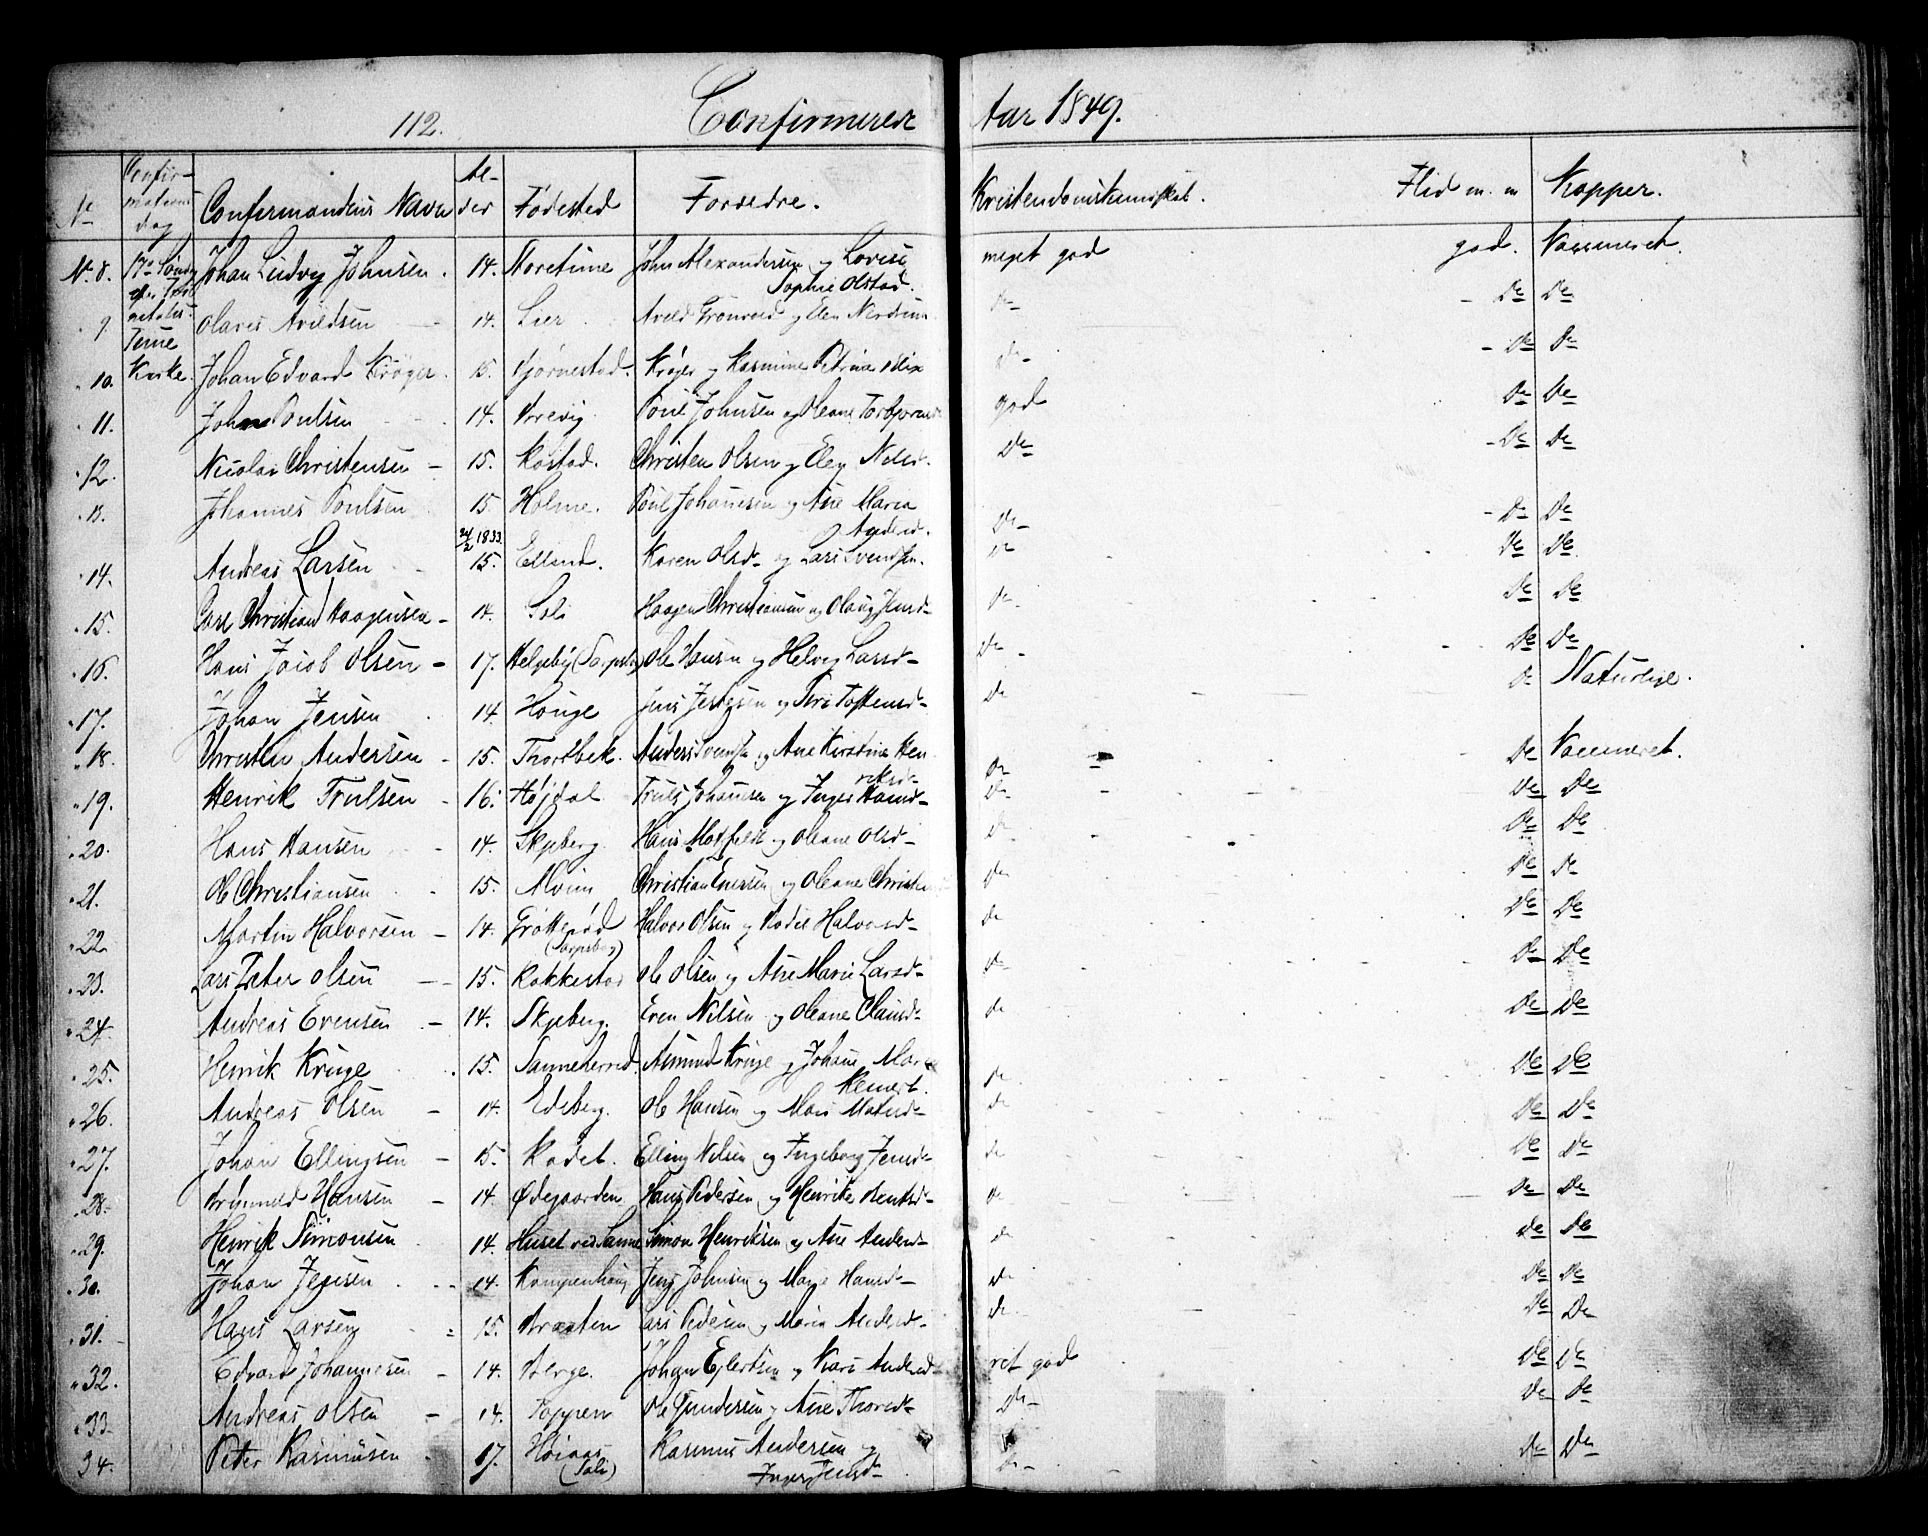 112. Confirmerede Aar 1849.
No Confirmations dag Confirmandens Navn Alder Fødested Forældre. Kristendomskundskab. Flid m. m Kopper.
No 8. 17de Søndag efter Trinitatis Tune Kirke. Johan Ludvig Johnsen. 14. John Alexandersen og Lovise Sophie Olstad. meget god god. Vaccineret.
" 9. Olaves Avildsen 14. Lier Avild Grønvold og Elen Nordrum Do Do Do
" 10. Johan Edvard Krøger. 15. Bjørnestad. Krøjer og Rasmine Petrine Do Do Do
" 11. Johan Poulsen 14. Poul Johnsen og Oleane god Do Do
" 12. Nicolai Christensen 15. Rostad. Christen Olsen og Do Do Do
" 13. Johannes Poulsen 15. Holme. Poul Johanesen og Ane Maria Andersd. Do Do Do
" 14. Andreas Larsen 24/2 1833. 15. Karen Olsd. og Lars Svendsen. Do Do Do
" 15. Carl Christian Haagensen 14. Haagen Christiansen og Olaug Jensd. Do Do Do
" 16. Hans Jacob Olsen 17. Helgeby (Sarpsborg) Ole Hansen og Helvig Larsd. Do Do Do
" 17. Johan Jensen 14. Houge Jens og Do Do Naturlige.
" 18. Christen Andersen 15. Anders Svends. og Ane Kirstina Henriksd. Do Do Vaccineret.
" 19. Henrik Trulsen 16. Højdal Truls Johansen og Inger Hansd. Do Do Do
" 20. Hans Hansen 14. Skjeberg Hans og Oleane Olsd. Do Do Do
" 21. Ole Christiansen 15. Alvim Christian Enersen og Oleane Do Do Do
" 22. Martin Halvorsen 14. Grotterød (Sarpsborg) Halvor Olsen og Halvorsd. Do Do Do
" 23. Lars Peter Olsen 15. Rakkestad Ole Olsen og Ane Marie Larsd. Do Do Do
" 24. Andreas Evensen 14. Skjeberg. Even Nilsen og Oleane Clausd. Do Do Do
" 25. Henrik Kruge 15. Sanneherred. Asmund Kruge og Johane Do Do Do
" 26. Andreas Olsen 14. Edeberg. Ole Hansen og Mari Do Do Do
" 27. Johan Ellingsen 15. Radet. Elling Nilsen og Ingeborg Jensd. Do Do Do
" 28. Hansen 14. Ødegaarden Hans Pedersen og Henrike Do Do Do
" 29. Henrik Simonsen 14. Huset ved Sanne Simon Henriksen og Ane Andersd. Do Do Do
" 30. Johan Jensen 14. Kampenhaug Jens Johnsen og Hansd. Do Do Do
" 31. Hans Larsen 15. Braaten Lars Pedersen og Maria Andersd. Do Do Do
" 32. Edvard Johannesen 14. Berge. Johan Ejlertsen og Kari Andersd. ret god Do Do
" 33. Andreas Olsen 14. Toppen Ole Gundersen og Ane Thorsd. Do Do Do
34. Peter Rasmusen 17. Rasmus Andersen og Inger Jensd. Do Do Do